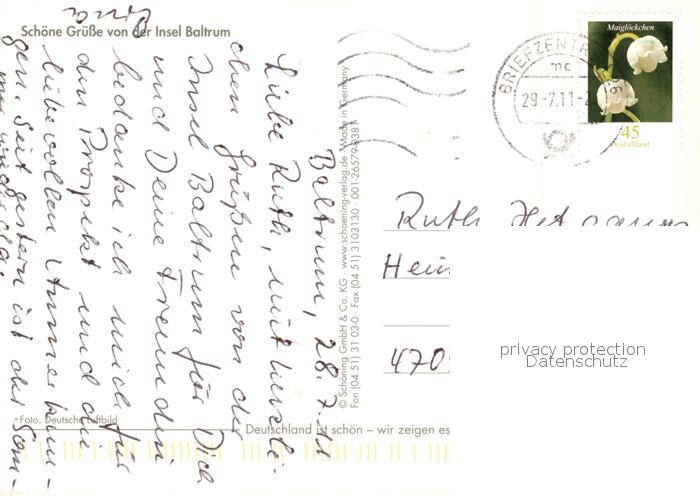 Schöne Grüße von der Insel Baltrum
Maiglöckchen
45
Deutschland
BRIEFZENTR
29.-7.11-2
Baltrum, 28.7.11
Liebe Ruth, mit herzli-
chen Grüßen von der
Insel Baltrum für Dich
und Deine Freundin
bedanke ich mich für
den Prospekt und die
liebevollen
gen. Seit gestern ist der Som-
© Schöning GmbH & Co. KG · www.schoening-verlag.de · Made in Germany
Fon (04 51) 31 03-0 · Fax (04 51) 3103130 · 001-26579-0381
Ruth
Hein
470
privacy protection
Datenschutz
Foto: Deutsche Luftbild
Deutschland ist schön – wir zeigen es